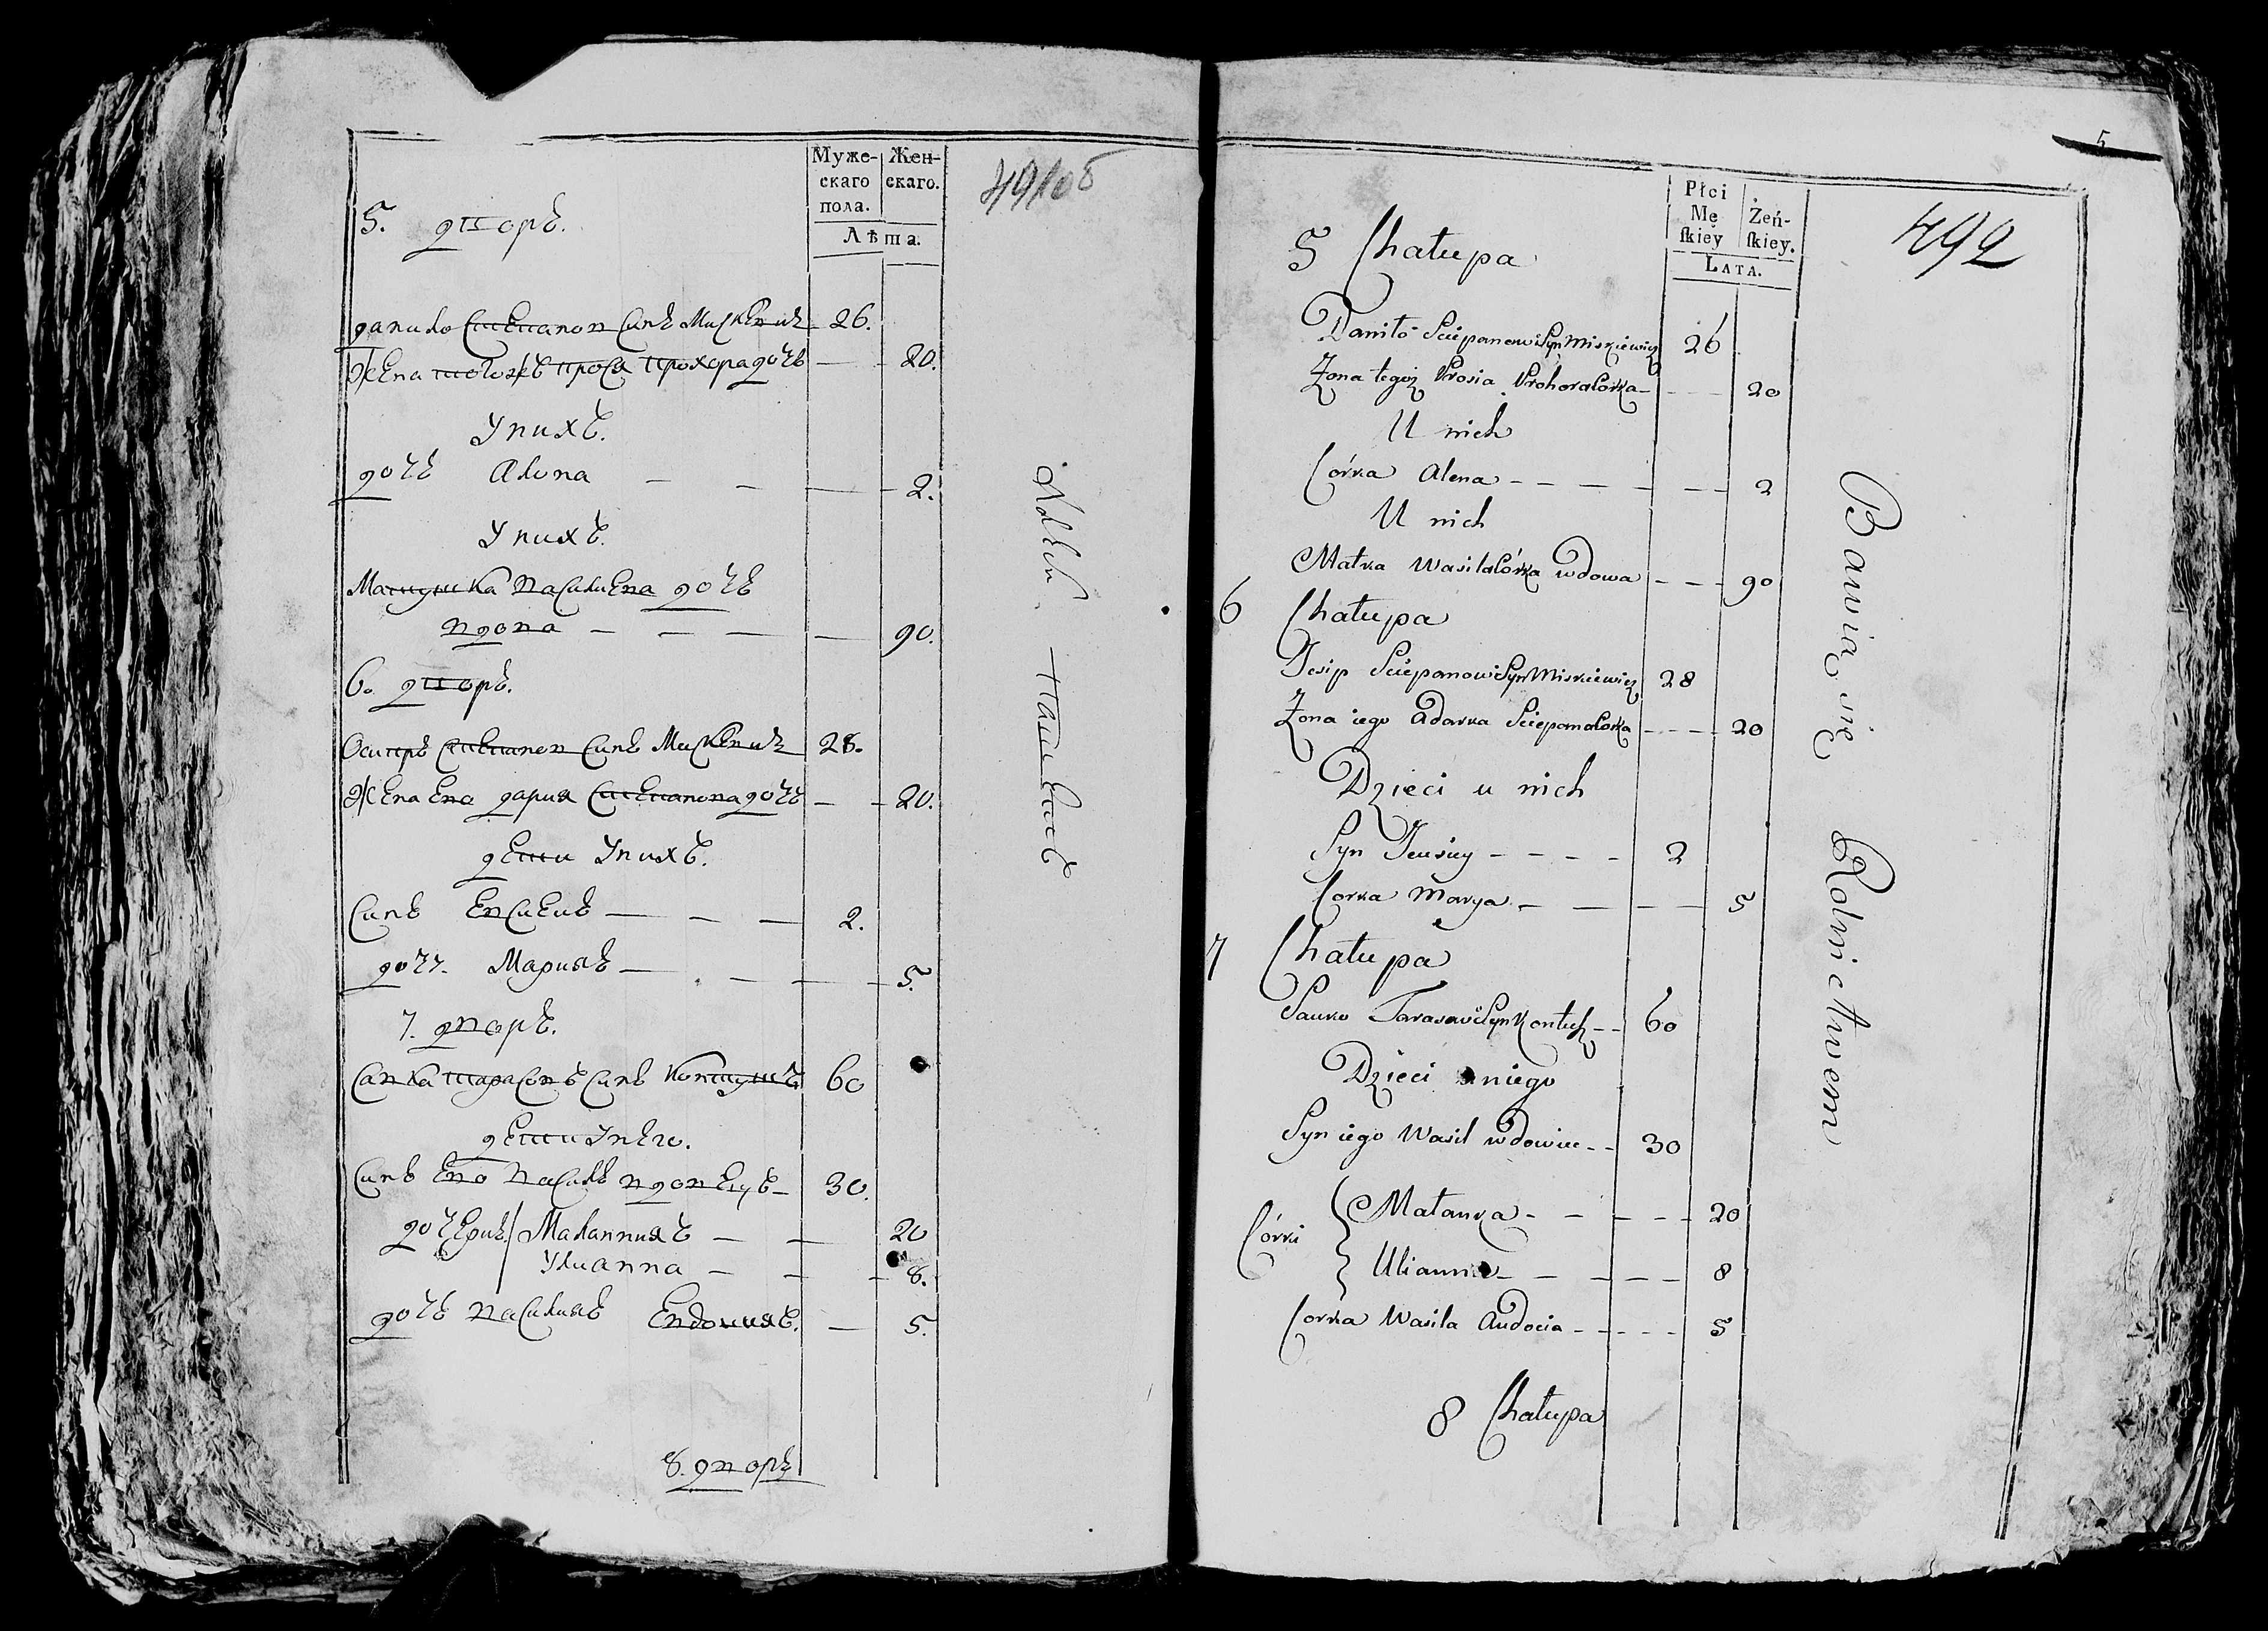 Муже-
скаго
пола.
Жен-
скаго.
Лѣта.
491об
5. дворъ.
данило Степанов Синъ Мискевичъ 26.
Жена тогожъ прося прохора дочъ — 20.
Унихъ.
дочъ Алена — — — 2.
Унихъ.
Матушка Василева дочъ
вдова — — — 90.
6. дворъ.
Осипръ Степанов Синъ Мискевичъ 28.
Жена Ево дария Степанова дочъ — 20.
дети Унихъ.
Синъ Евсиеиъ — — — 2.
дочъ. Марияъ — — — 5.
7. дворъ.
Савка тарасовъ Синъ Контушъ 60
дети Унего.
Синъ Ево Василъ вдовецъ — 30.
дочериъ Маланнияъ — — 20
Улианна — — 8.
дочъ Василияъ Евдоцияъ. — 5.
8. дворъ
5
Płci
Mę
ſkiey
Żeń-
ſkiey.
LATA.
492
5 Chałupa
Daniło Sciepanow Syn Miskiewicz 26
Zona tegoż Prosia Prohora Córka — 20
U nich
Córka Alena — — — 2
U nich
Matka Wasila Córka wdowa — — 90
6 Chałupa
Jesip Sciepanow Syn Miskiewicz 28
Zona iego Adarka Sciepana Corka — 20
Dzieci u nich
Syn Jeusiey — — — 2
Corka Marya — — — 5
7 Chałupa
Sauko Tarasow Syn Kontusz — 60
Dzieci u niego
Syn iego Wasil wdowiec — 30
Córki
Małanka — — — 20
Ulianna — — — 8
Corka Wasila Audocia — — — 5
8 Chałupa
Bawią się Rolnictwem